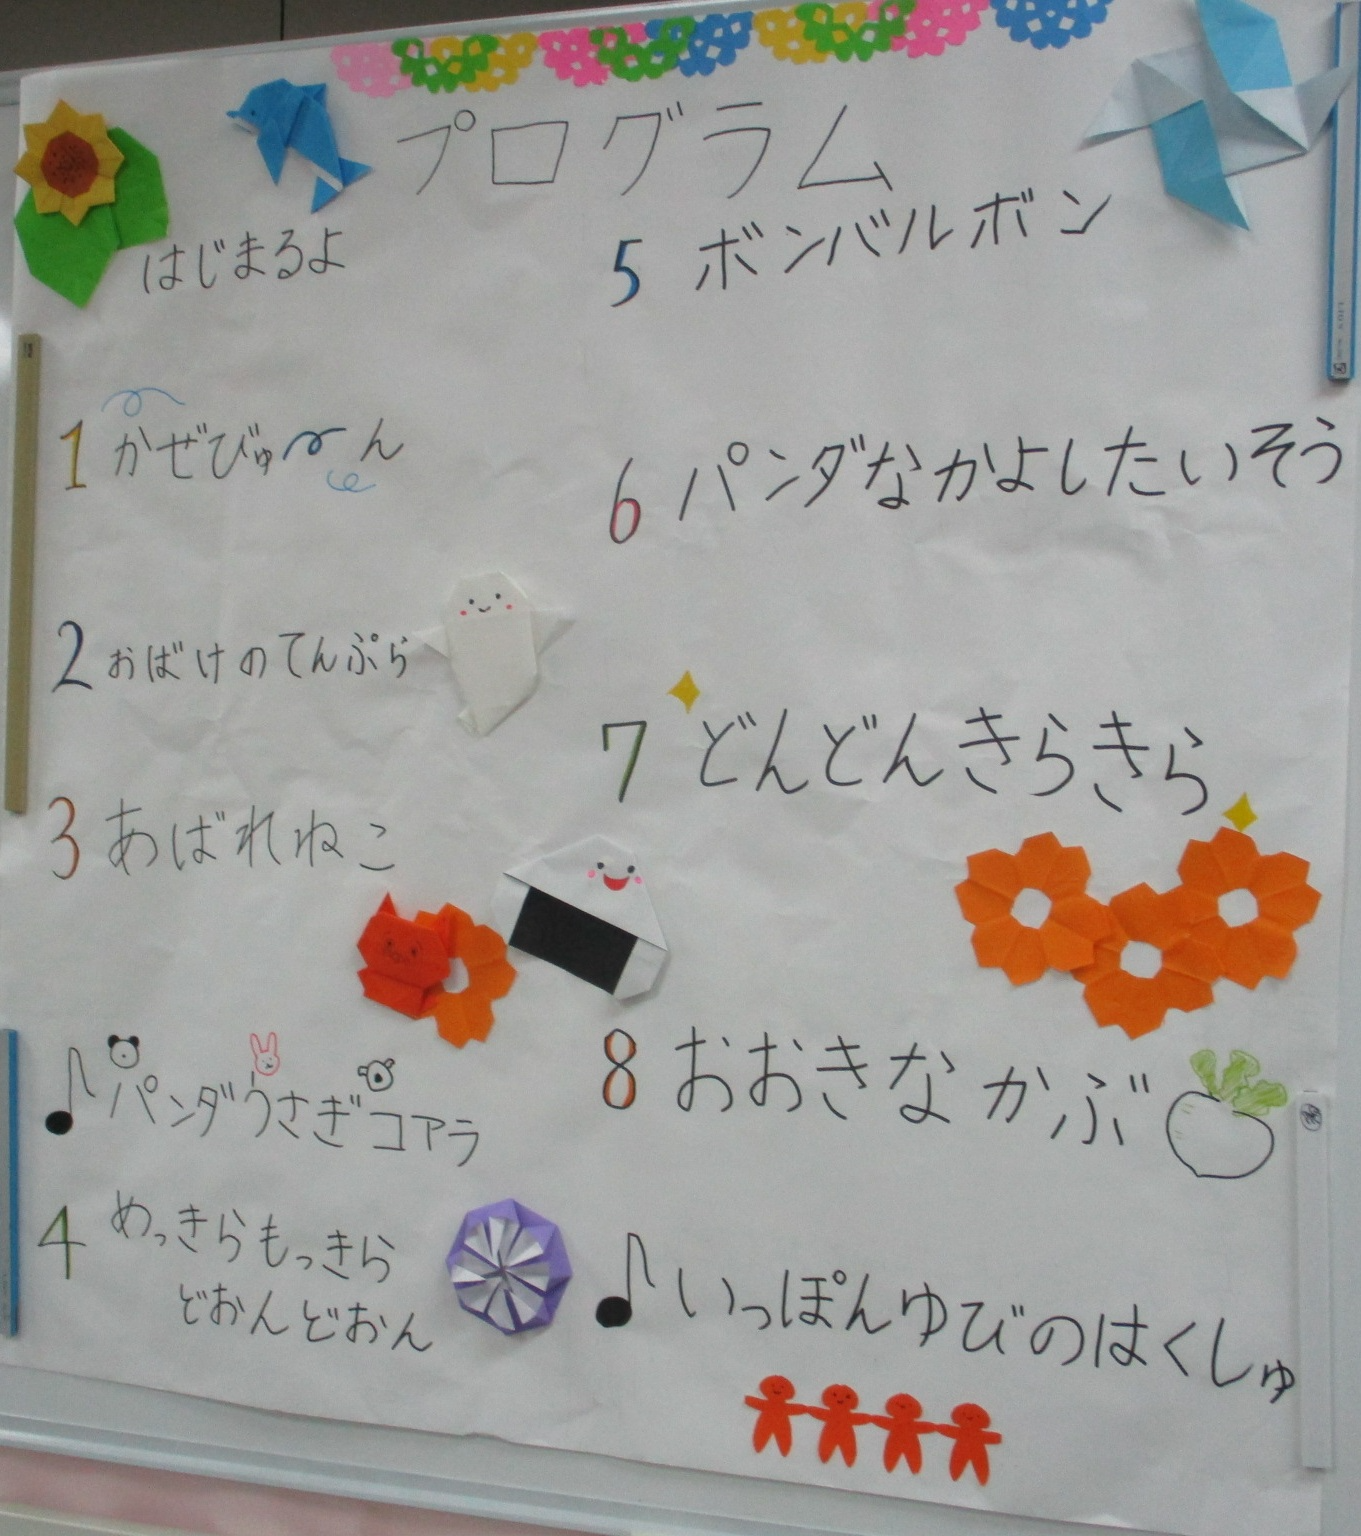 プログラム
はじまるよ
1 かぜびゅーん
2 おばけのてんぷら
3 あばれねこ
♪パンダうさぎコアラ
4 めっきらもっきら
どおんどおん
5 ボンバルボン
6 パンダなかよしたいそう
7 どんどんきらきら
8 おおきなかぶ
♪いっぽんゆびのはくしゅ